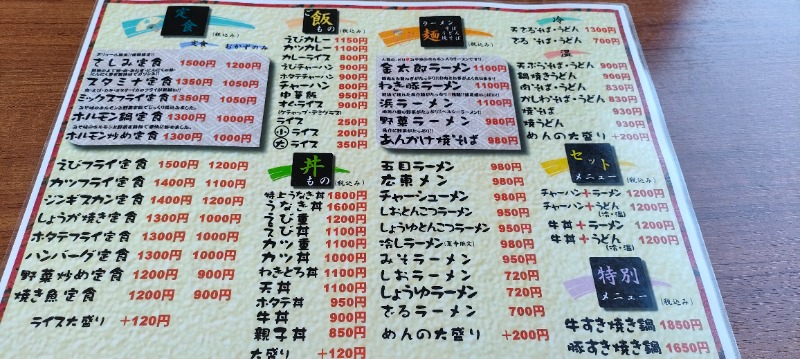 定食
(税込み)
定食 おかずのみ
さしみ定食 1500円 1200円
スタミナ定食 1350円 1050円
ミックスフライ定食 1350円 1050円
ホルモン鍋定食 1300円 1000円
ホルモン炒め定食 1300円 1000円
えびフライ定食 1500円 1200円
カツフライ定食 1400円 1100円
ジンギスカン定食 1400円 1200円
しょうが焼き定食 1300円 1000円
ホタテフライ定食 1300円 1000円
ハンバーグ定食 1300円 1000円
野菜炒め定食 1200円 900円
焼き魚定食 1200円 900円
ライス大盛り +120円
ご飯もの
(税込み)
えびカレー 1150円
カツカレー 1100円
カレーライス 800円
えびチャーハン 900円
ホタテチャーハン 900円
チャーハン 800円
中華飯 950円
オムライス 900円
(ケチャップ・デミソース)
ライス 250円
小ライス 200円
大ライス 350円
丼もの
(税込み)
特上うなぎ丼 1800円
うなぎ丼 1600円
えび重 1200円
えび丼 1100円
カツ重 1100円
カツ丼 1000円
わきとろ丼 1100円
天丼 1100円
ホタテ丼 950円
牛丼 900円
親子丼 850円
大盛り +120円
ラーメン
そば
うどん
焼そば
麺
(税込み)
釜太郎ラーメン 1100円
わき豚ラーメン 1100円
浜ラーメン 1100円
野菜ラーメン 980円
あんかけ焼そば 980円
五目ラーメン 980円
広東メン 980円
チャーシューメン 980円
しおとんこつラーメン 950円
しょうゆとんこつラーメン 950円
冷しラーメン(夏季限定) 980円
みそラーメン 950円
しおラーメン 720円
しょうゆラーメン 720円
ざるラーメン 700円
めんの大盛り +200円
冷
天ざるそば・うどん 1300円
ざるそば・うどん 700円
温
天ぷらそば・うどん 980円
鍋焼きうどん 980円
肉そば・うどん 830円
かしわそば・うどん 830円
焼そば 930円
焼うどん 930円
めんの大盛り +200円
セットメニュー
(税込み)
チャーハン+ラーメン 1200円
チャーハン+うどん 1200円
(冷・温)
牛丼+ラーメン 1200円
牛丼+うどん 1200円
(冷・温)
特別メニュー
(税込み)
牛すき焼き鍋 1850円
豚すき焼き鍋 1650円